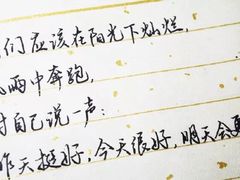 们应该在阳光下灿烂,
雨中奔跑,
对自己说一声:
昨天挺好,今天很好,明天会更